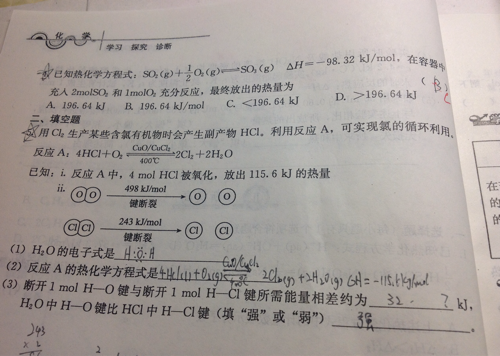 化 学
学习 探究 诊断
已知热化学方程式：SO₂(g)+½O₂(g)⇌SO₃(g) ΔH=−98.32 kJ/mol，在容器中
充入2molSO₂和1molO₂充分反应，最终放出的热量为 ( B
C
A. 196.64 kJ B. 196.64 kJ/mol C. <196.64 kJ D. >196.64 kJ
二、填空题
用Cl₂生产某些含氯有机物时会产生副产物HCl。利用反应A，可实现氯的循环利用。
反应A：4HCl+O₂ CuO/CuCl₂ 400℃ 2Cl₂+2H₂O
已知：i. 反应A中，4 mol HCl被氧化，放出115.6 kJ的热量
ii. O O 498 kJ/mol 键断裂 O O
Cl Cl 243 kJ/mol 键断裂 Cl Cl
(1) H₂O的电子式是 H:O:H
(2) 反应A的热化学方程式是 4HCl(g)+O₂(g) CuO/CuCl₂ 400℃ 2Cl₂(g)+2H₂O(g) ΔH=-115.6kJ/mol
(3) 断开1 mol H—O键与断开1 mol H—Cl键所需能量相差约为 32 . ? kJ，
H₂O中H—O键比HCl中H—Cl键（填“强”或“弱”） 强 。
243
x 2
2